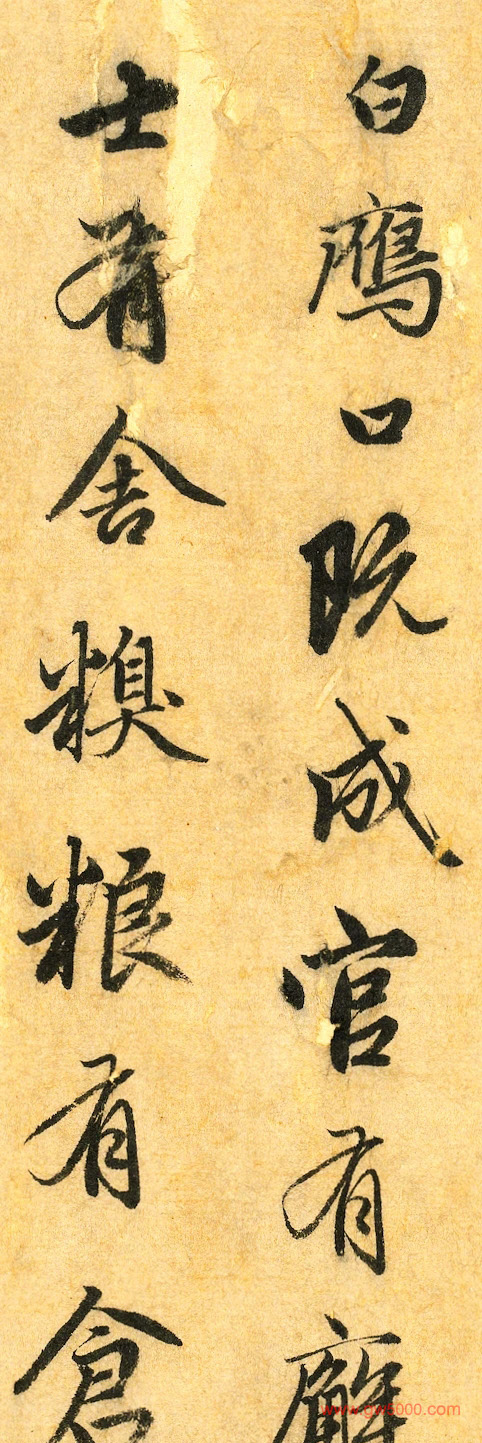 白鹰口既成官有廨
士有舍糗粮有倉
www.gw5000.com